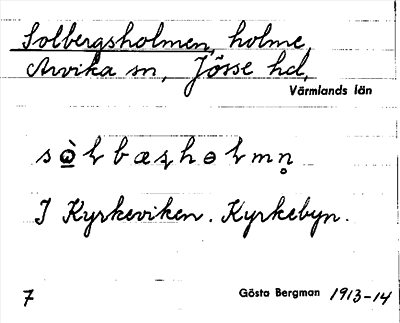 Solbergsholmen, holme,
Arvika sn, Jösse hd,
Värmlands län
I Kyrkeviken. Kyrkebyn.
7 Gösta Bergman 1913-14